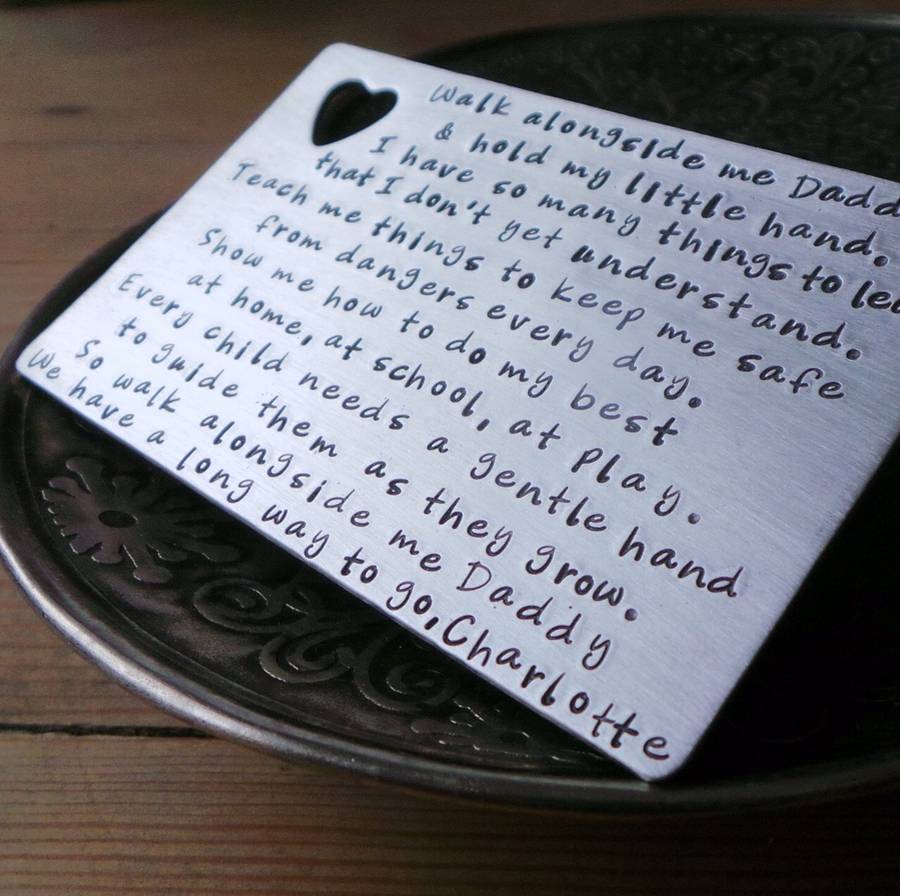 Walk alongside me Dadd
& hold my little hand.
I have so many things to lea
that I don't yet understand.
Teach me things to keep me safe
from dangers every day.
Show me how to do my best
at home, at school, at play.
Every child needs a gentle hand
to guide them as they grow.
So walk alongside me Daddy
We have a long way to go, Charlotte